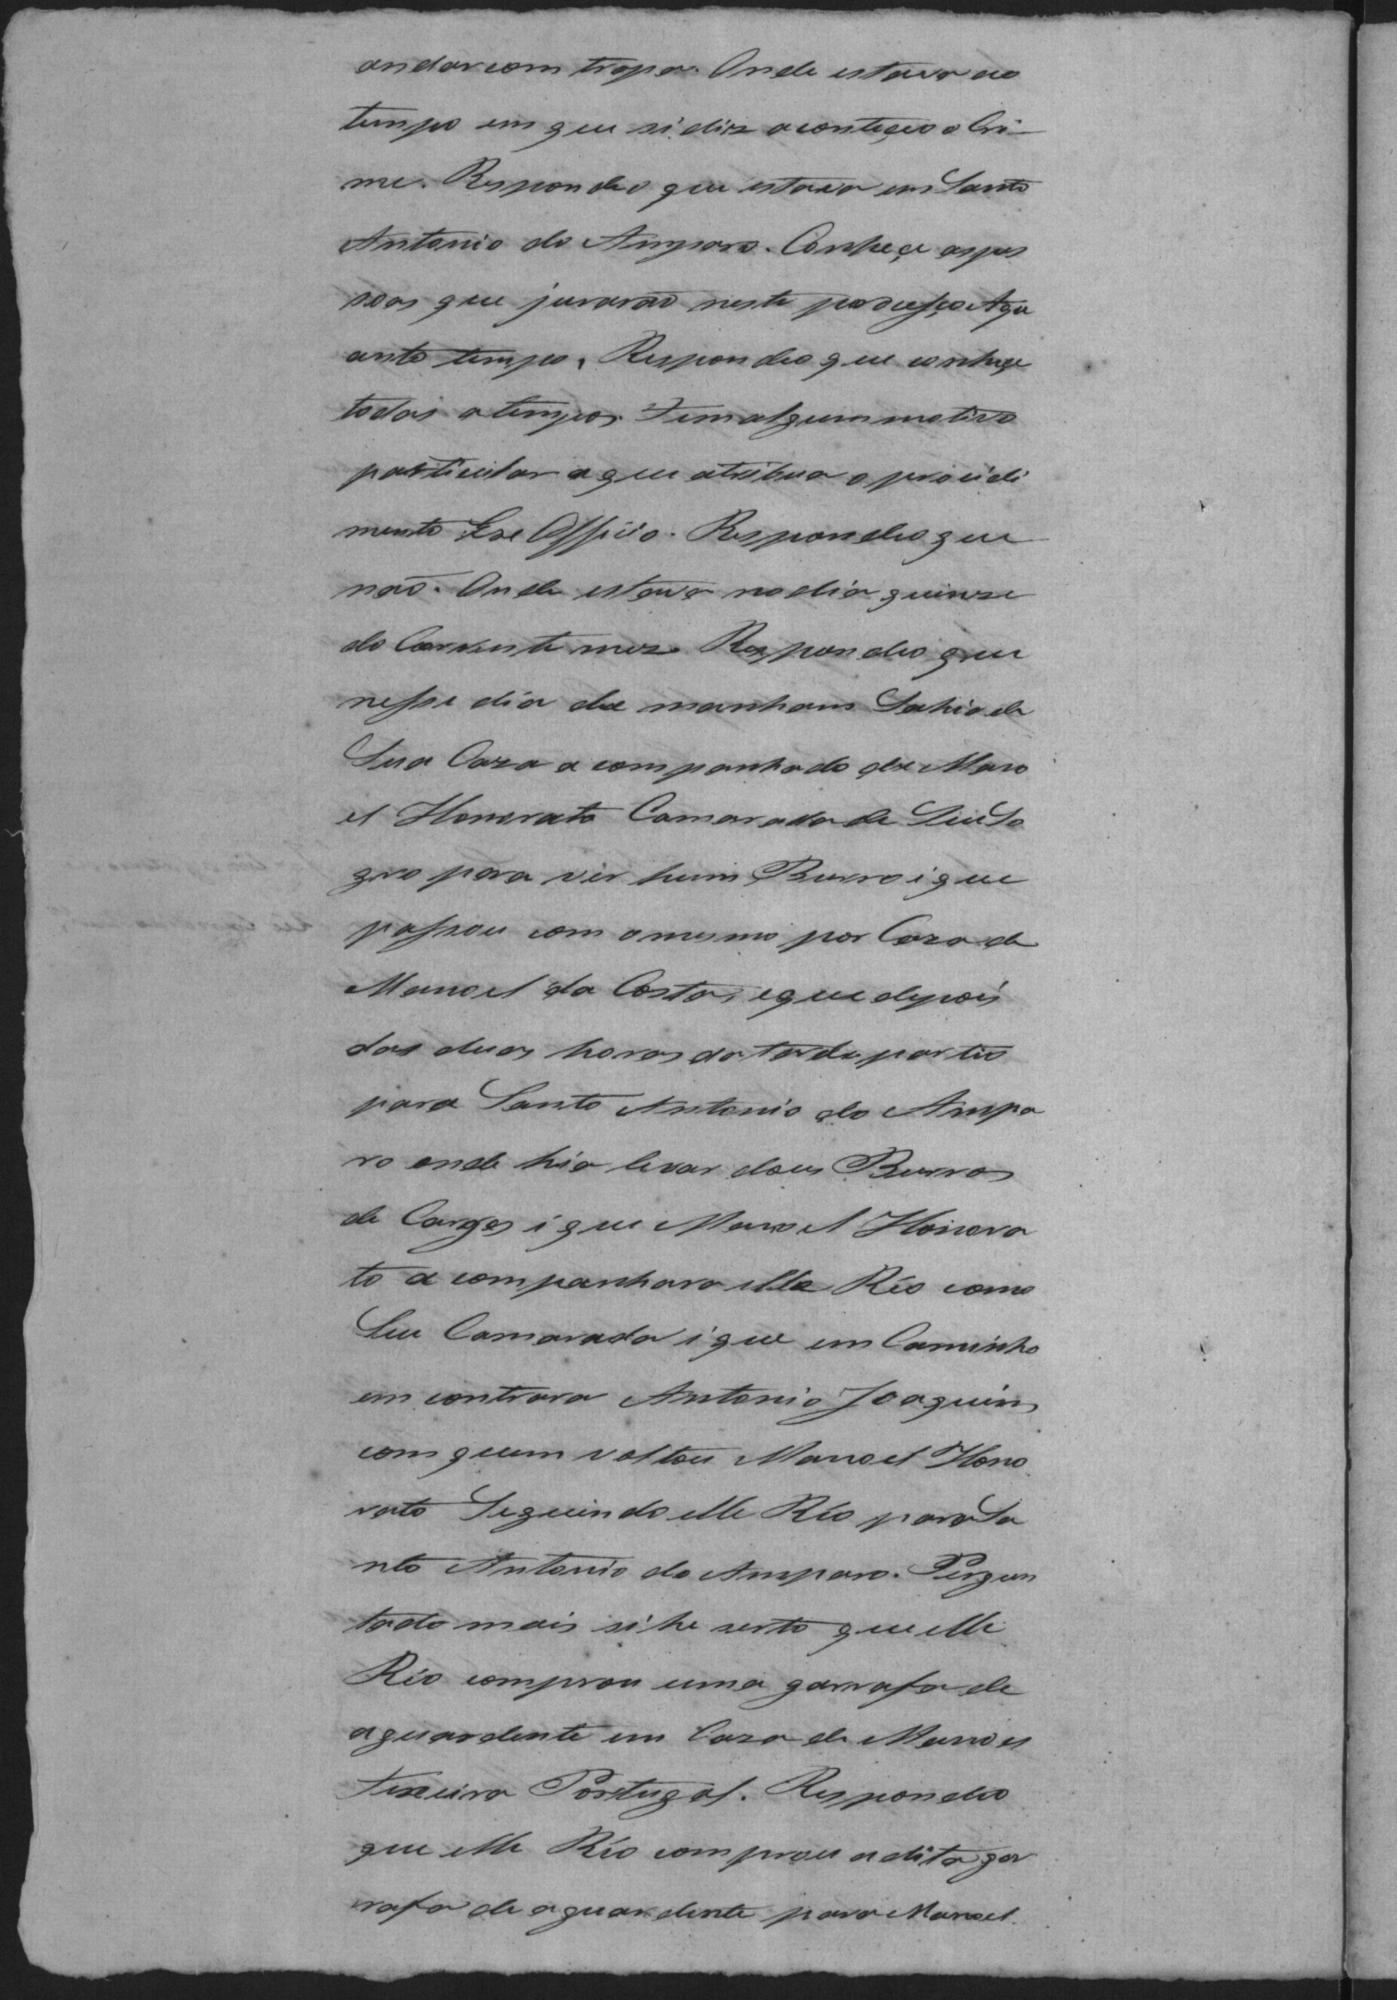 andar com tropa. Onde estava ao
tempo em que si diz aconteçeo o Cri-
me. Respondeo que estava em Santo
Antonio do Amparo. Conheçe as pes
soas que jurarão neste proçesso e A qu
anto tempo. Respondeo que conheçe
todas a tempos. Tem algum motivo
particular a que atribua o procidi
mento Exe Officio. Respondeo que
não. Onde estava no dia quinze
do Corrente mez. Respondeo que
nesse dia de manham Sahio de
Sua Caza a companhado de Mano
el Honorato Camarada de Seu So
gro para ver hum Burro i que
passou com o mesmo por Caza de
Manoel da Costa, e que depois
das duas horas da tarde partio
para Santo Antonio do Ampa
ro onde hia levar dous Burros
de Cargas i que Manoel Honora
to a companhara elle Réo como
Seu Camarada i que em Caminho
em contrara Antonio Joaquim
com quem voltou Manoel Hono
rato Seguindo elle Réo para Sa
nto Antonio do Amparo. Pergun
tado mais si he serto que elle
Réo comprou uma garrafa de
aguardente em Caza de Manoel
Texeira Portugal. Respondeo
que elle Réo comprou a dita gar
rafa de aguardente para Manoel